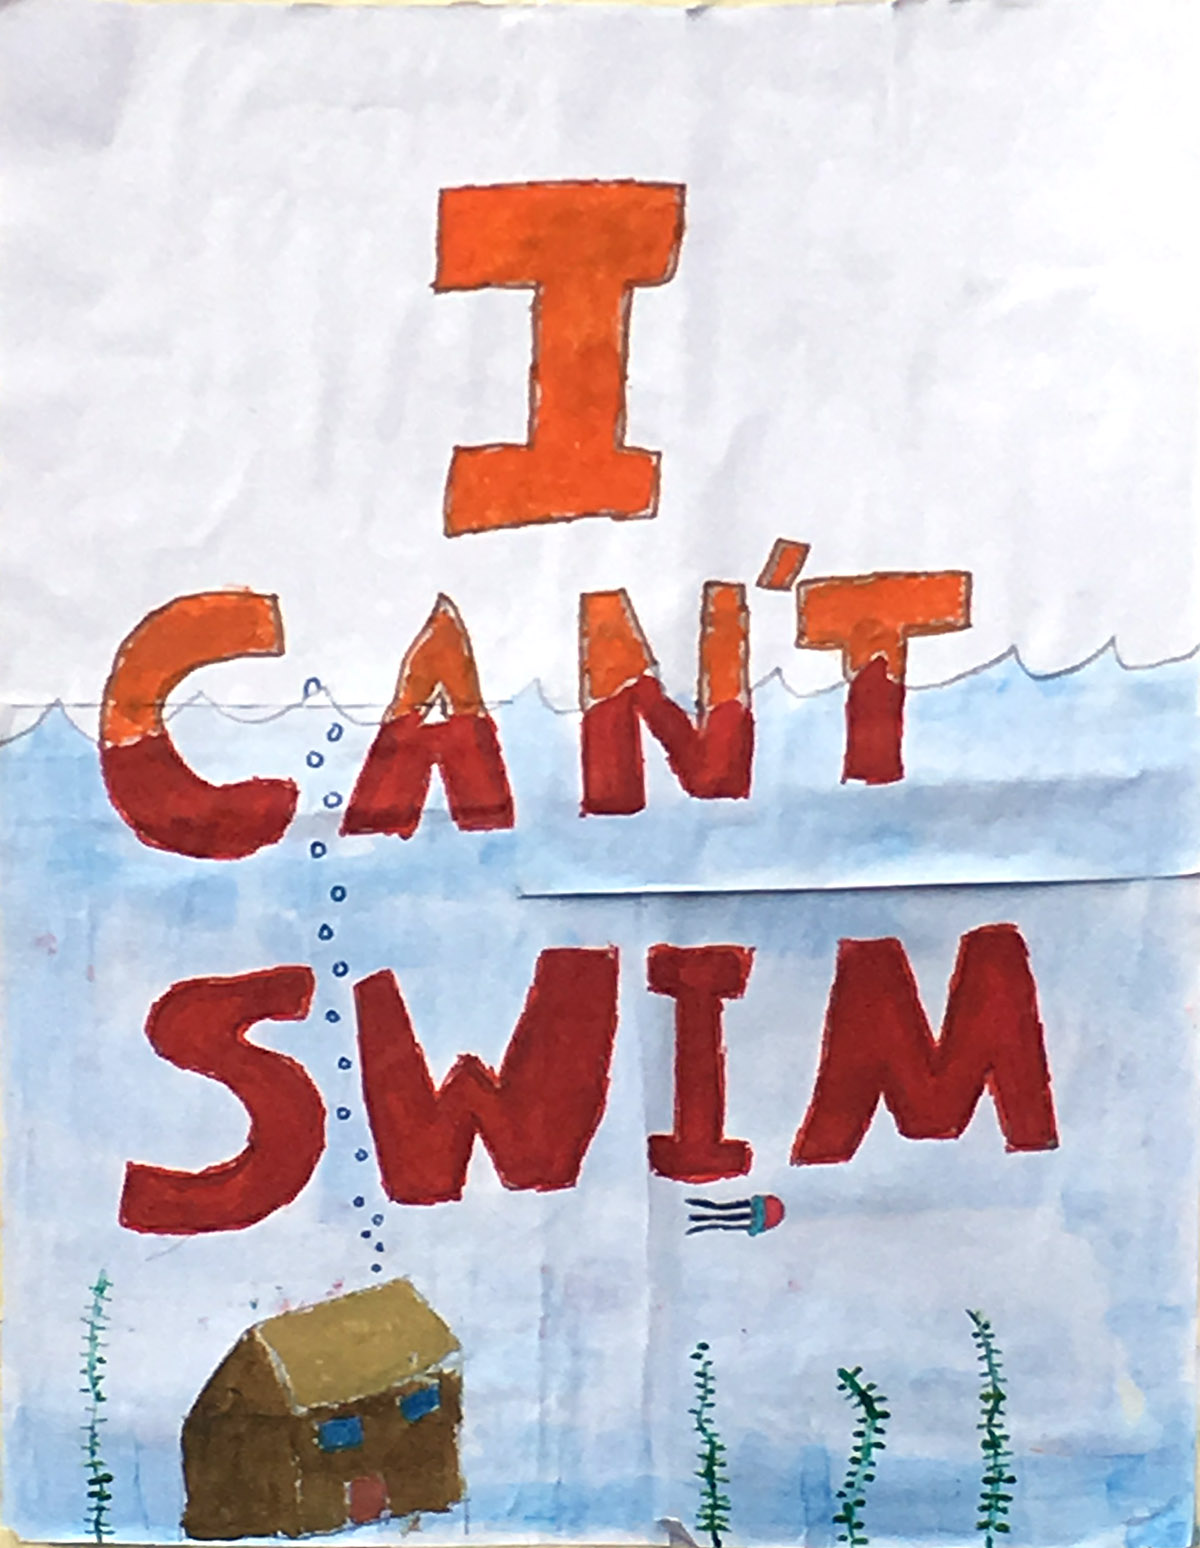 I
CAN'T
SWIM